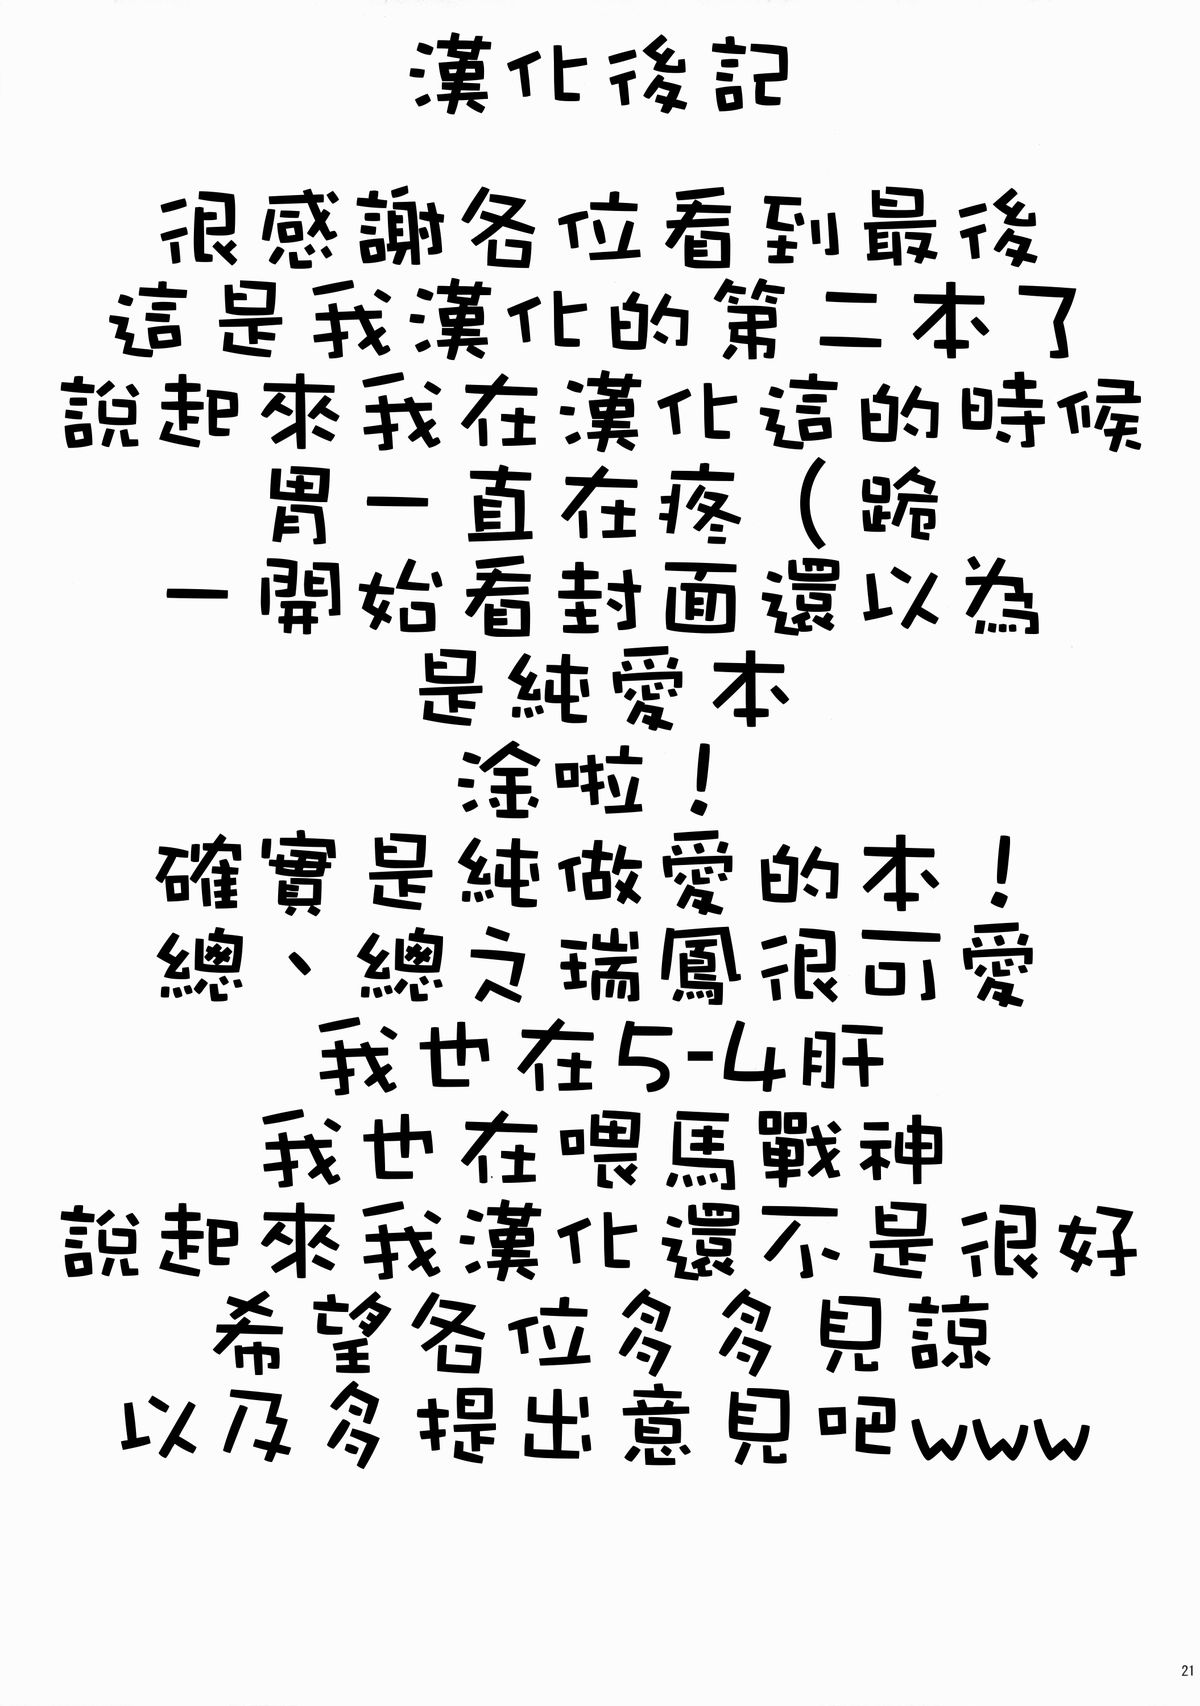 漢化後記
很感謝各位看到最後
這是我漢化的第二本了
說起來我在漢化這的時候
胃一直在疼（跪
一開始看封面還以為
是純愛本
淦啦！
確實是純做愛的本！
總、總之瑞鳳很可愛
我也在5-4肝
我也在喂馬戰神
說起來我漢化還不是很好
希望各位多多見諒
以及多提出意見吧www
21